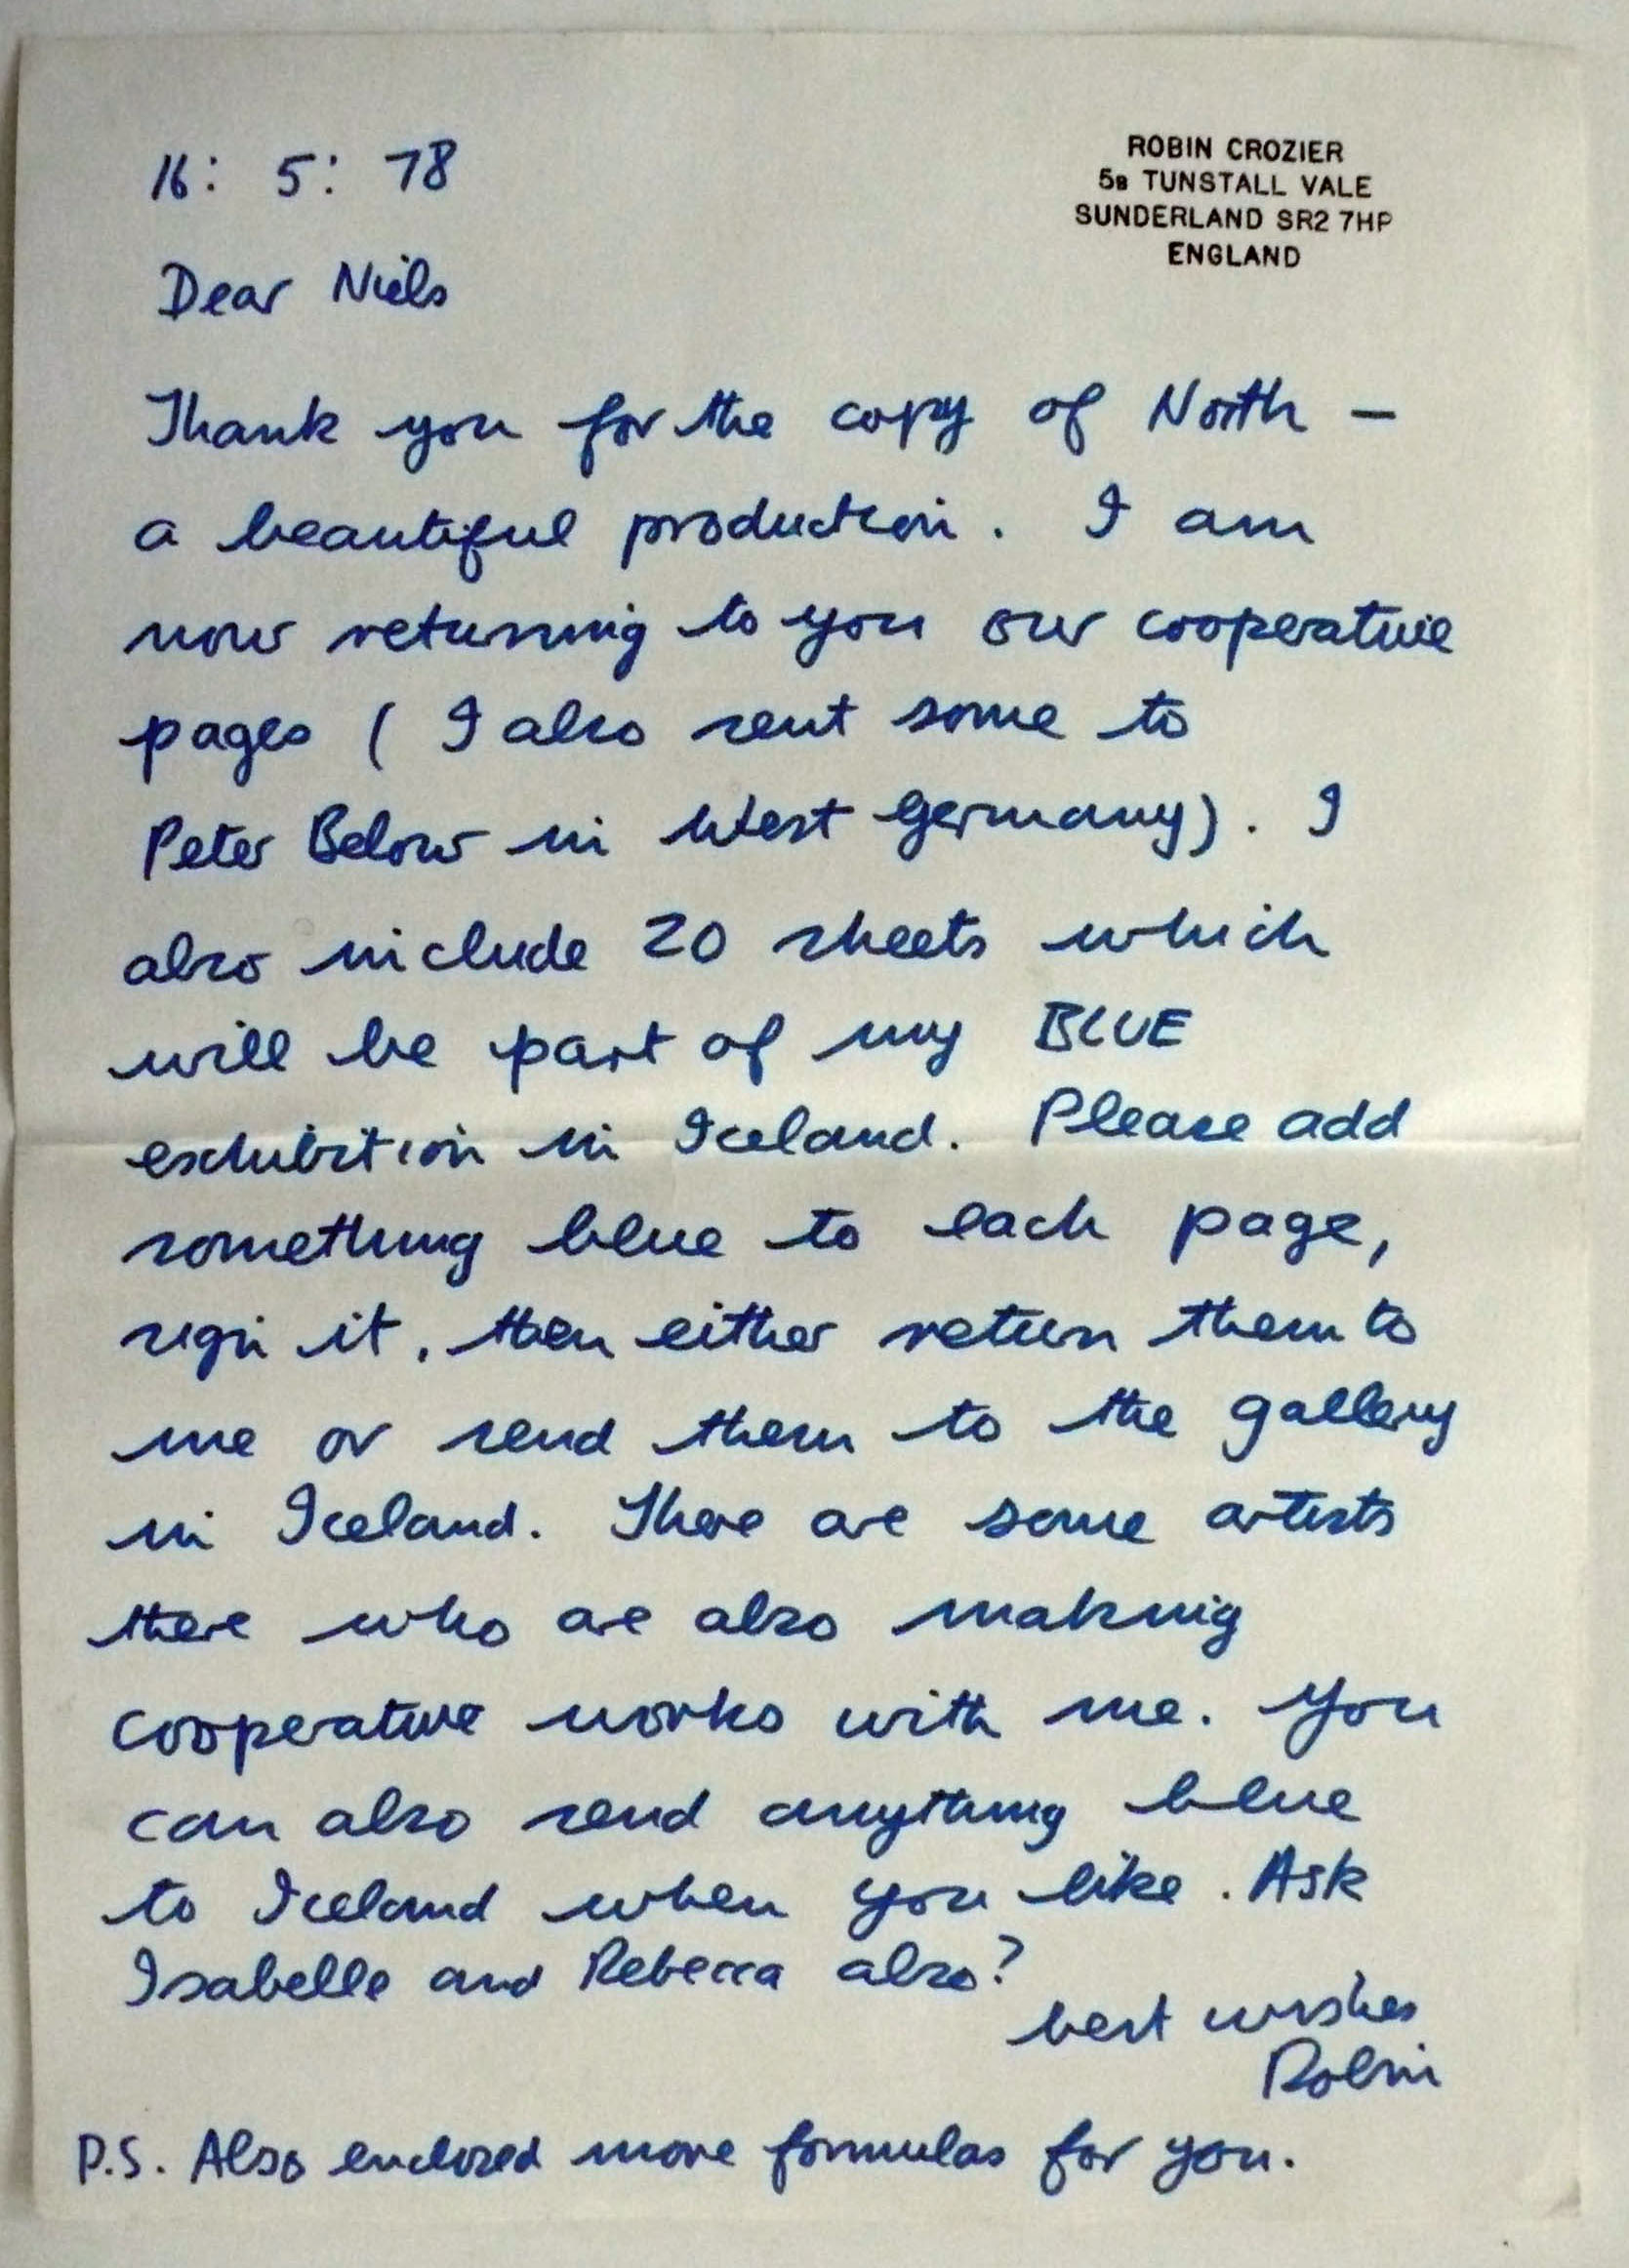 16: 5: 78
ROBIN CROZIER
5B TUNSTALL VALE
SUNDERLAND SR2 7HP
ENGLAND
Dear Niels
Thank you for the copy of North —
a beautiful production. I am
now returning to you our cooperative
pages ( I also sent some to
Peter Below in West Germany). I
also include 20 sheets which
will be part of my BLUE
exhibition in Iceland. Please add
something blue to each page,
sign it, then either return them to
me or send them to the gallery
in Iceland. There are some artists
there who are also making
cooperative works with me. You
can also send anything blue
to Iceland when you like. Ask
Isabelle and Rebecca also?
best wishes
Robin
P.S. Also enclosed more formulas for you.